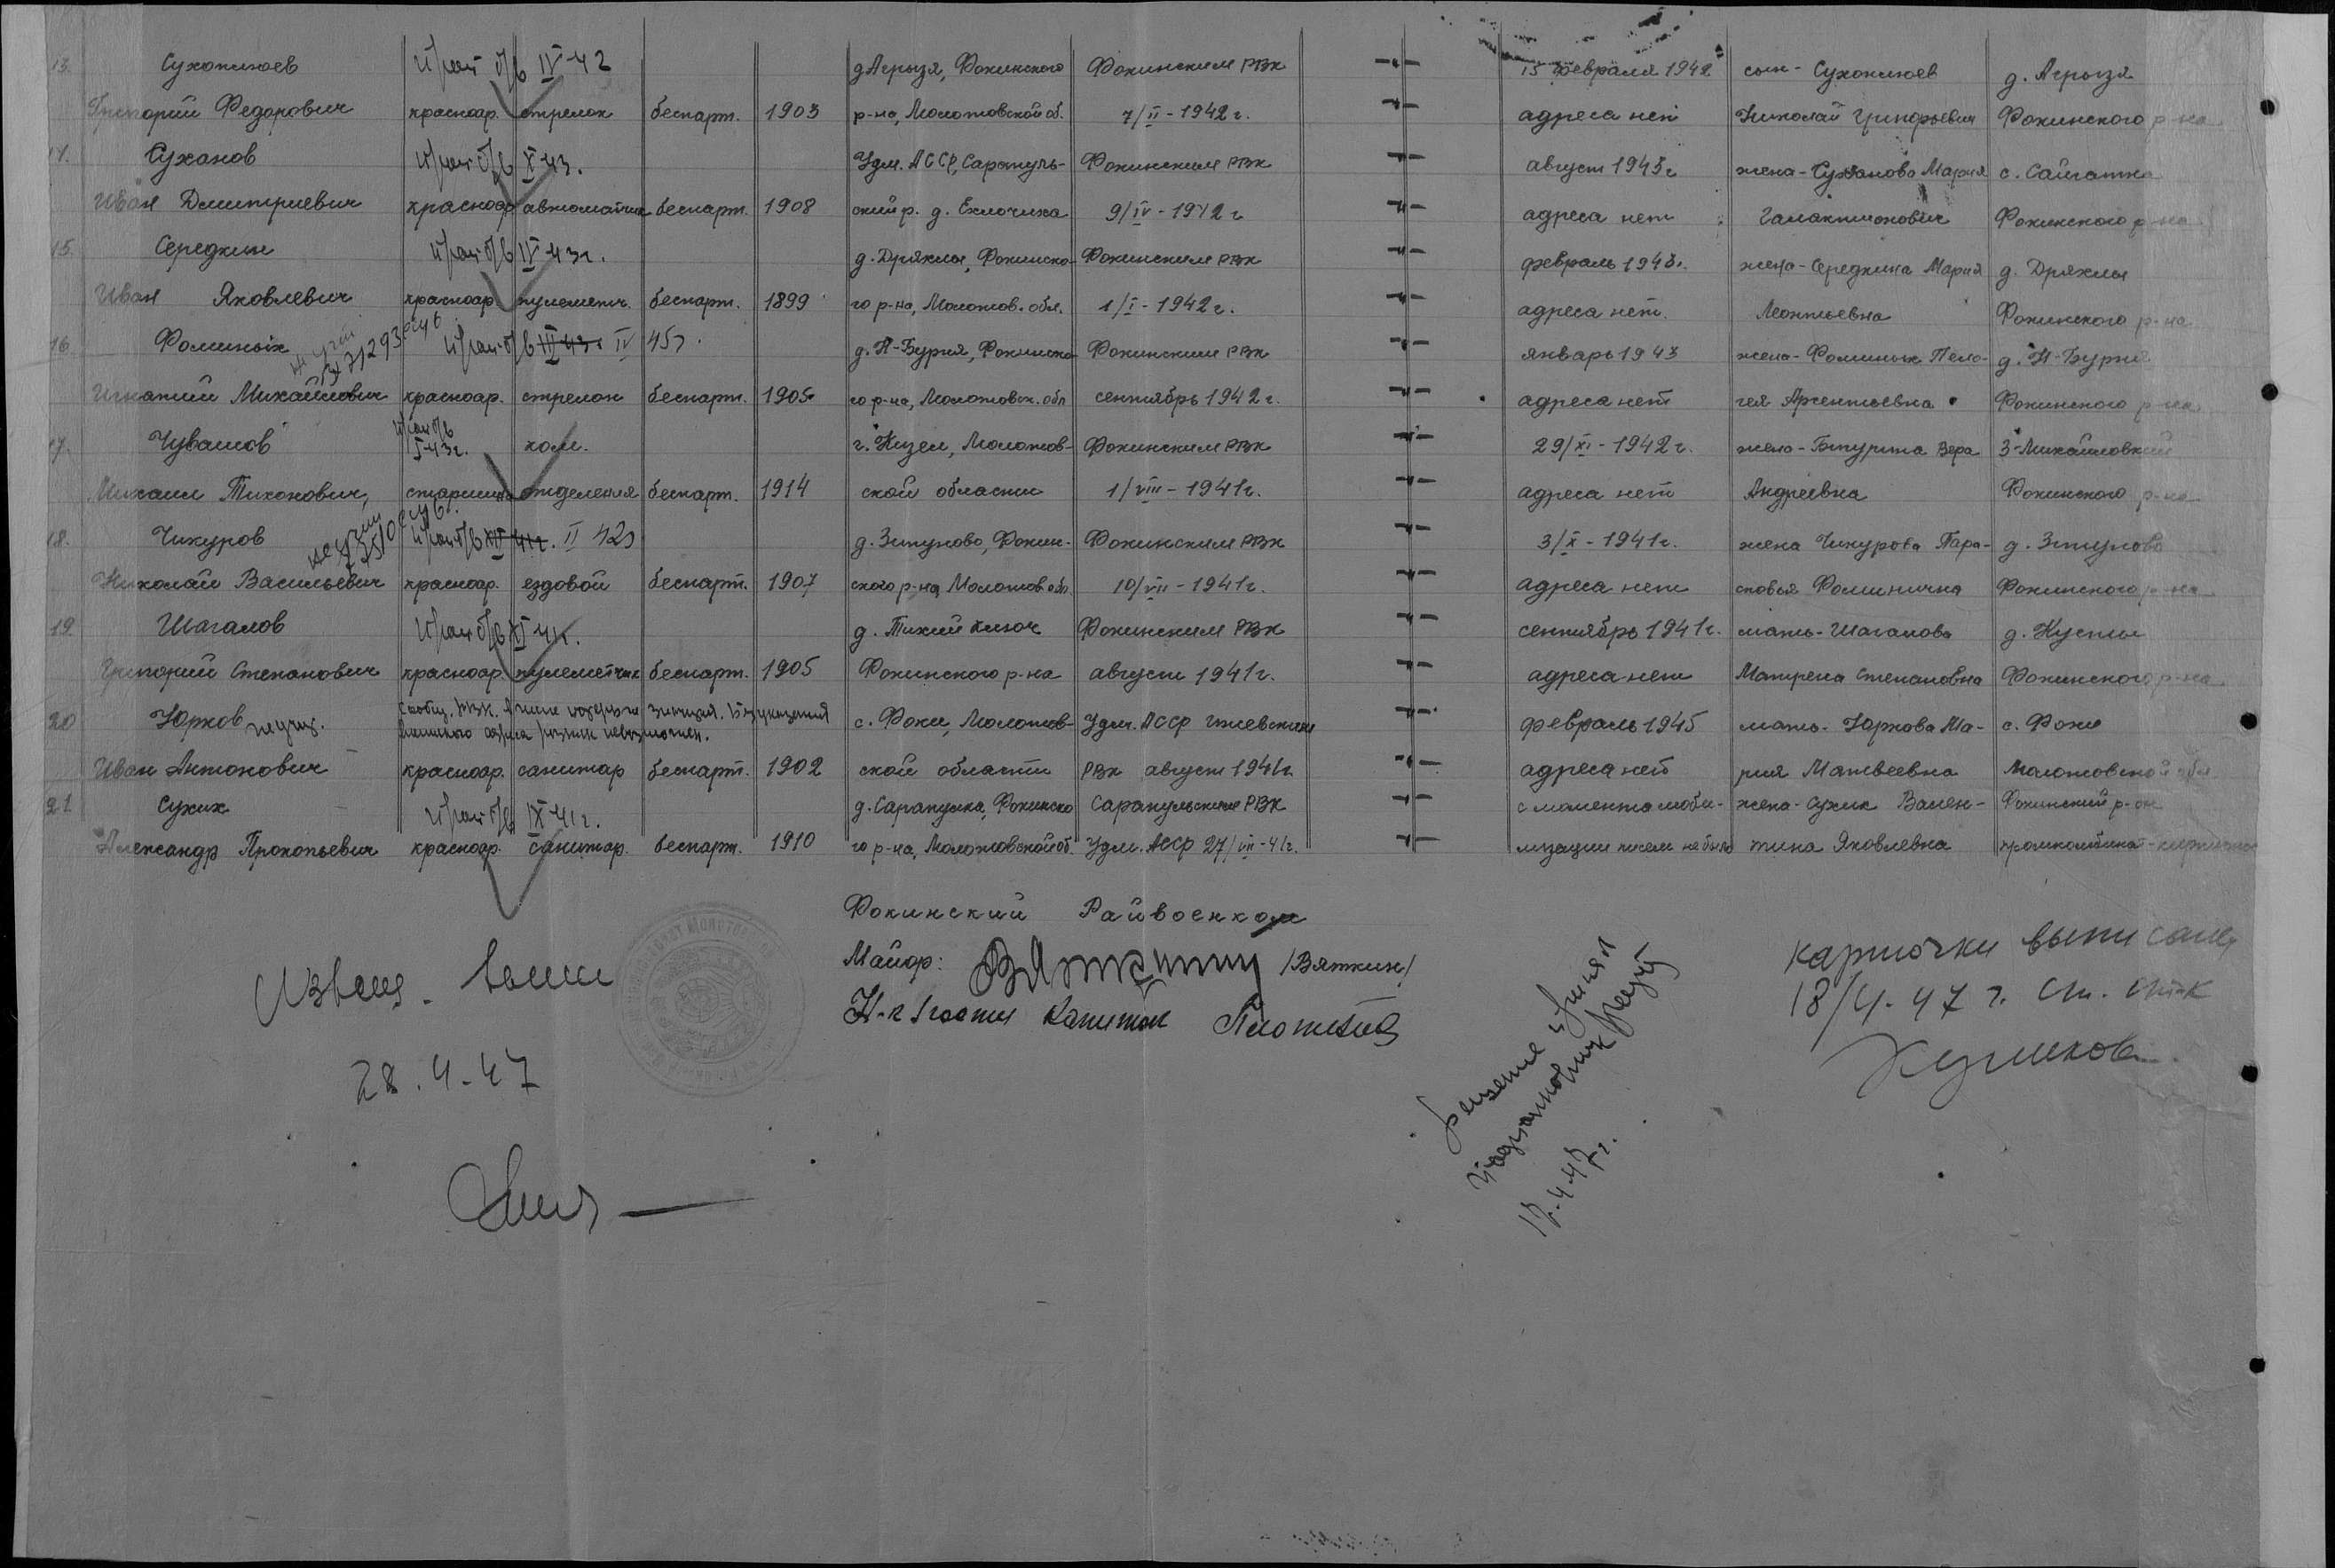 13. Сухоплюев И/пат б/в IV 42 д. Агрызя, Фокинского Фокинским РВК —"— 15 февраля 1942 сын - Сухоплюев д. Агрызя
Григорий Федорович красноар. стрелок беспарт. 1903 р-на, Молотовской об. 7/II - 1942 г. —"— адреса нет Николай Григорьевич Фокинского р-на
14. Суханов X 43. Удм. АССР, Сарапуль- Фокинским РВК —"— август 1943 г жена - Суханова Мария с. Сайгатка
Иван Дмитриевич красноар автоматчик беспарт. 1908 ский р. д. Ехлочика 9/IV - 1942 г —"— адреса нет Галактионович Фокинского р-на
15. Середкин IV 43 г. д. Дряхлы, Фокинско- Фокинским РВК —"— февраль 1943 г. жена - Середкина Мария д. Дряхлы
Иван Яковлевич красноар пулеметч. беспарт. 1899 го р-на, Молотов. обл. 1/I - 1942 г. —"— адреса нет. Леонтьевна Фокинского р-на
16. Фоминых IV 45 г. д. Н-Бурня, Фокинско Фокинским РВК —"— январь 1943 жена - Фоминых Пела- д. Н-Бурня
Игнатий Михайлович красноар. стрелок беспарт. 1905 го р-на, Молотовск. обл сентябрь 1942 г. —"— адреса нет гея Арсентьевна Фокинского р-на
17. Чувашов I 43 г. ком. г. Кизел, Молотов- Фокинским РВК —"— 29/XI - 1942 г. жена - Батурина Вера З-Михайловский
Михаил Тихонович, старшина отделения беспарт. 1914 ской области 1/VIII - 1941 г. —"— адреса нет Андреевна Фокинского р-на
18. Чикуров II 42 г д. Зипуново, Фокин- Фокинским РВК —"— 3/X - 1941 г. жена Чикурова Пара- д. Зипуново
Николай Васильевич красноар. ездовой беспарт. 1907 ского р-на Молотов. обл 10/VII - 1941 г. —"— адреса нет сковья Фоминична Фокинского р-на
19 Шагалов XI 41 г. д. Тихий Ключ Фокинским РВК —"— сентябрь 1941 г. мать - Шагалова д. Кусты
Григорий Степанович красноар. пулеметчик беспарт. 1905 Фокинского р-на август 1941 г. —"— адреса нет Матрена Степановна Фокинского р-на
20 Юрков с. Фоки, Молотов- Удм. АССР Ижевским —"— февраль 1945 мать - Юркова Ма- с. Фоки
Иван Антонович красноар. санитар беспарт. 1902 ской области РВК август 1941 г. —"— адреса нет рия Матвеевна Молотовской обл
21 Сухих IX 41 г. д. Сарапулка, Фокинско Сарапульским РВК —"— с момента моби- жена - Сухих Вален- Фокинский р-он
Александр Прокопьевич красноар. санитар. беспарт. 1910 го р-на, Молотовской об. Удм. АССР 27/VII - 41 г. —"— лизации писем не было тина Яковлевна промкомбинат
Фокинский Райвоенком
Майор: Вяткин /Вяткин/
Н-к 1 части Капитан
Извещ.
28.4-47
карточки выписал
18/4-47 г.
17-4-47 г.